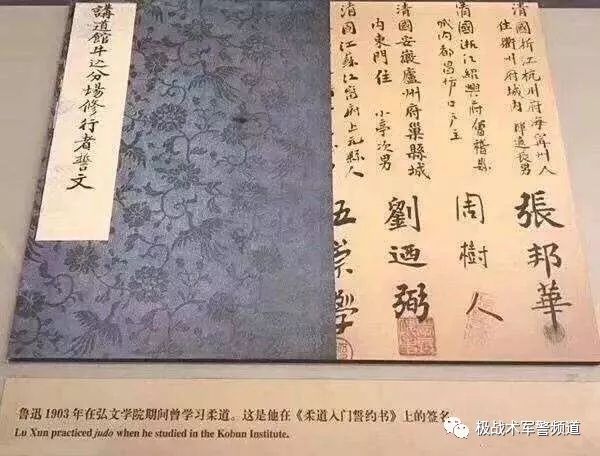 講道館牛込分場修行者誓文
清國浙江杭州府海寧州人
住衢州府城内 長男
張邦華
清國浙江紹興府會稽縣
城内都昌坊口戸主
周樹人
清國安徽廬州府巢縣城
内東門住 小亭次男
劉迺弼
清國江蘇江甯府上元縣人
伍崇學
鲁迅1903年在弘文学院期间曾学习柔道。这是他在《柔道入门誓约书》上的签名
Lu Xun practiced judo when he studied in the Kobun Institute.
极战术军警频道